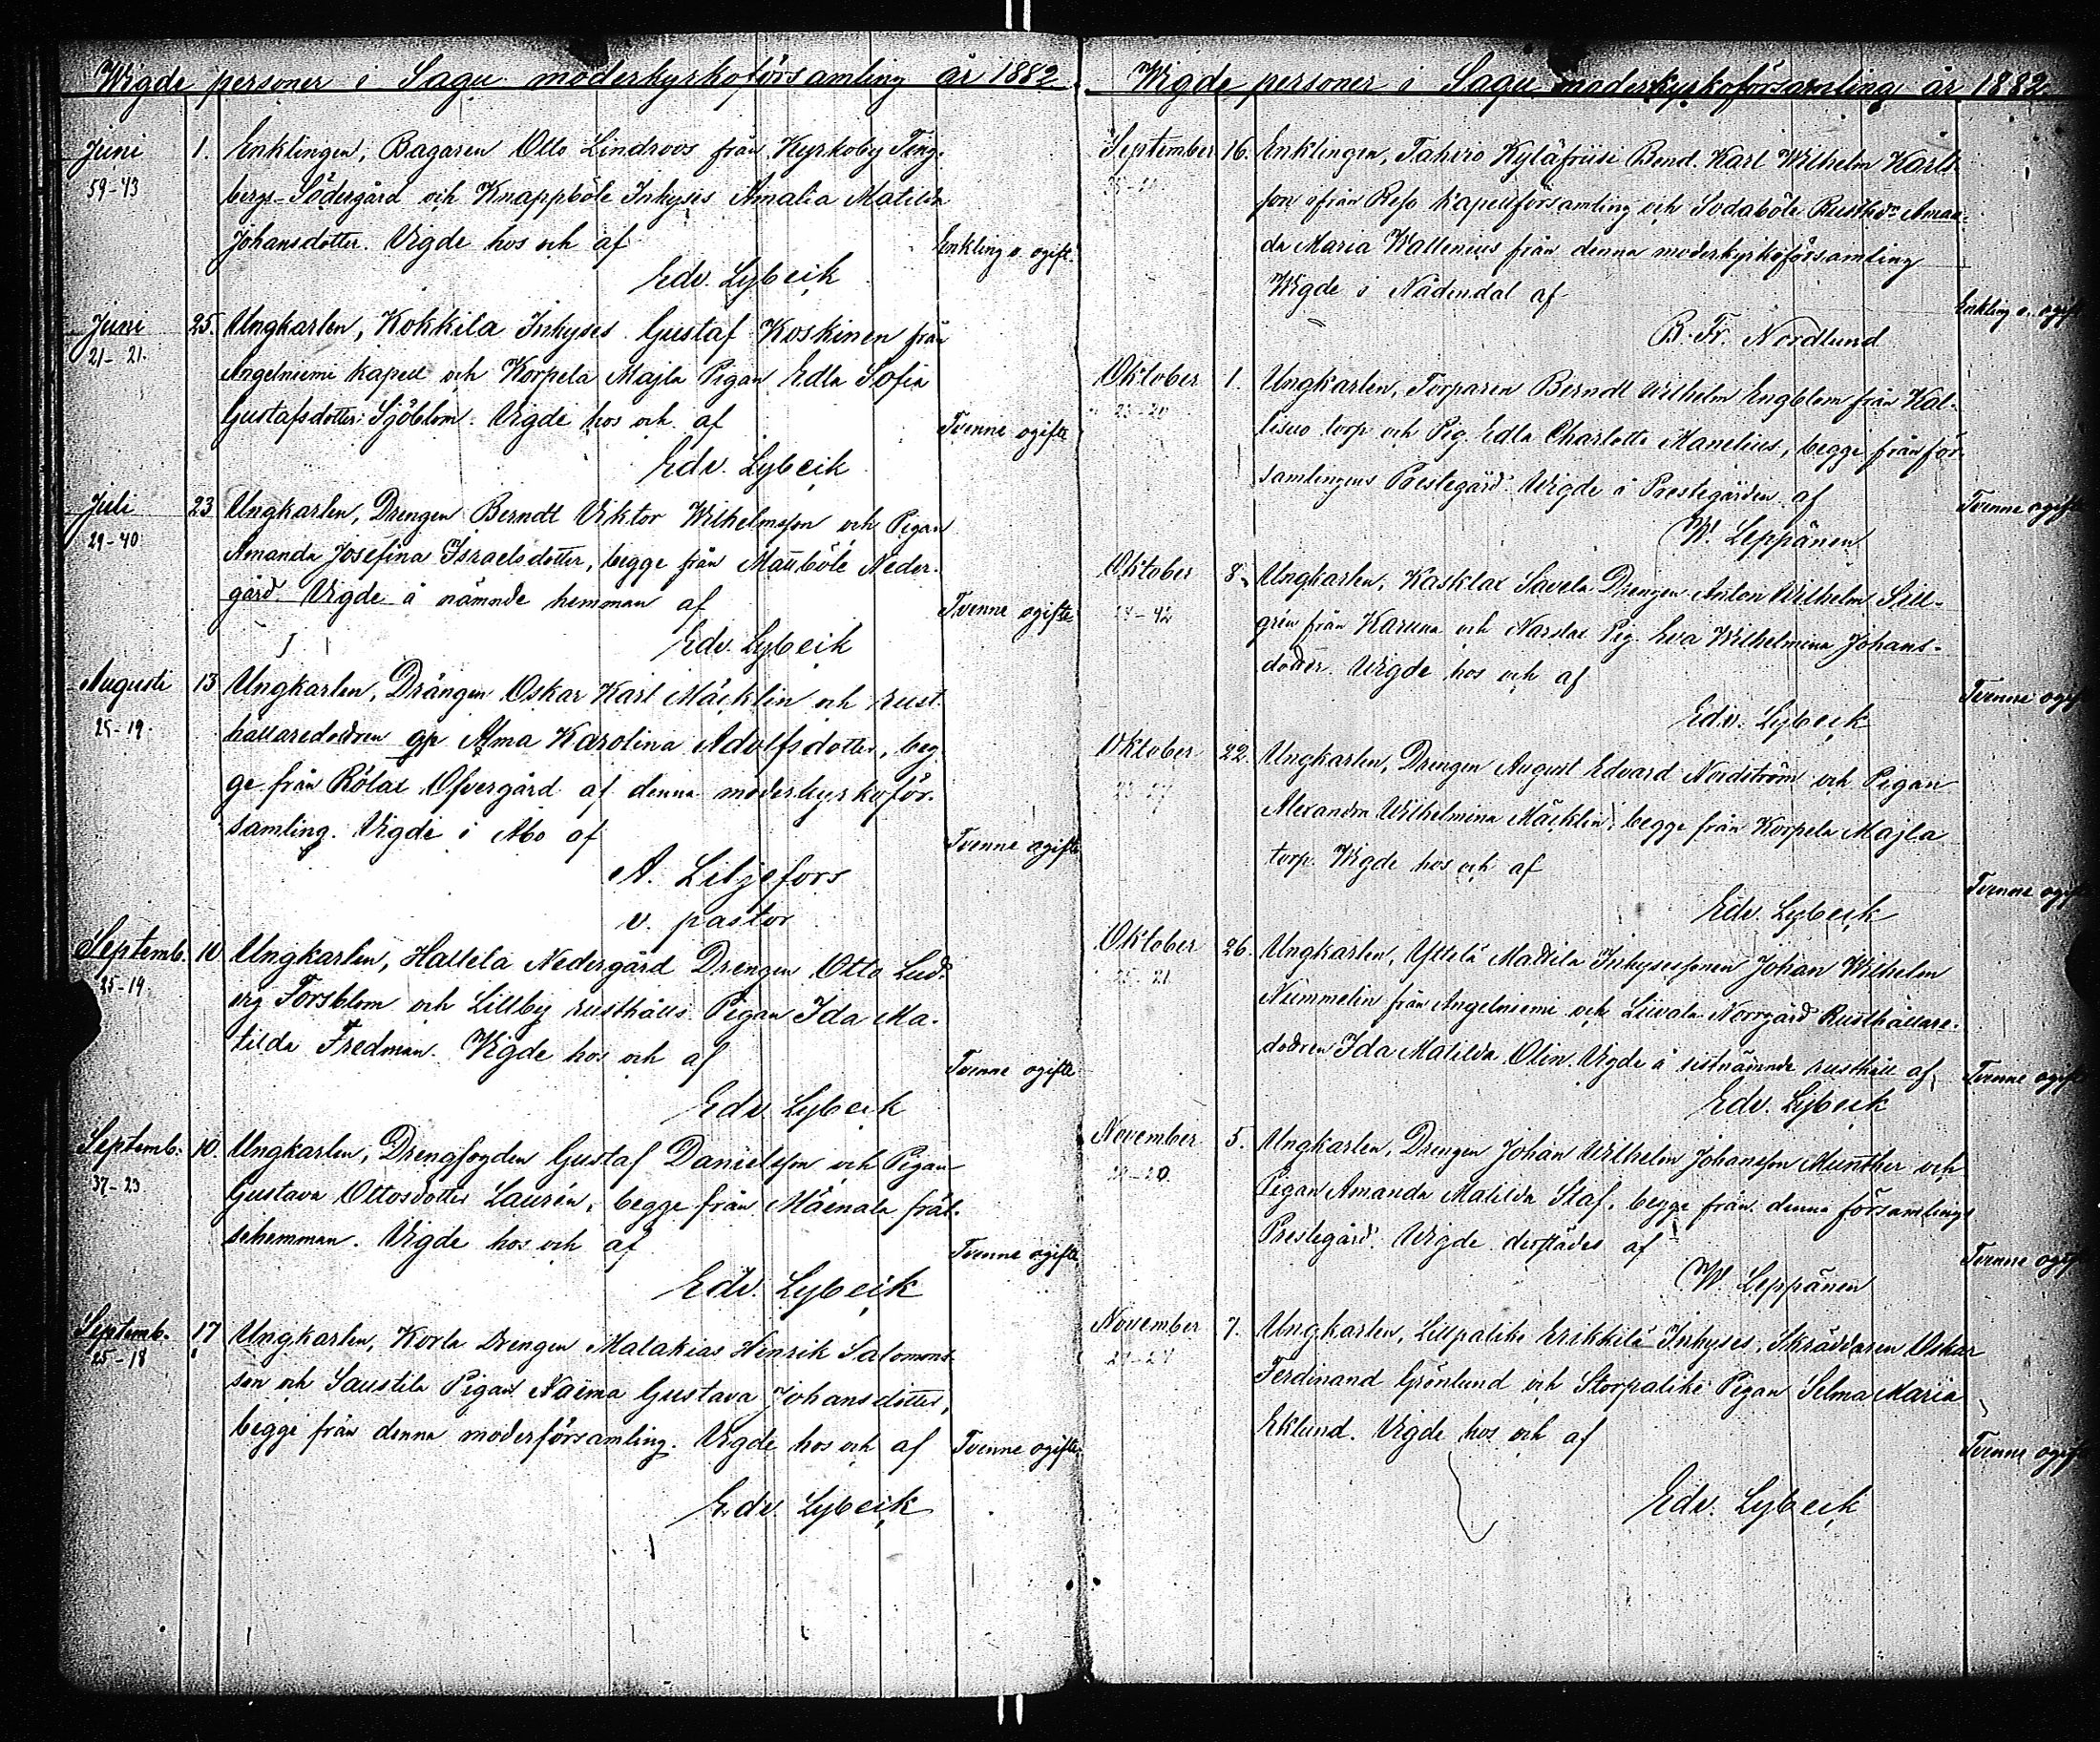 Wigde personer i Sagu moderkyrkoförsamling år 1882.
Juni 1. Enklingen, Bagaren Otto Lindroos från Kyrkoby Ting-
59-43 bergs-Södergård och Knappböle Inhyses Amalia Matilda
Johansdotter. Vigde hos och af Enkling o. ogift.
Edv. Lybeck
Juni 25. Ungkarlen, Kokkila Inhyses Gustaf Koskinen från
21-21. Angelniemi kapell och Korpela Majla Pigan Edla Sofia
Gustafsdotter Sjöblom. Vigde hos och af Tvenne ogifte
Edv. Lybeck
Juli 23 Ungkarlen, Drengen Berndt Viktor Wilhelmsson och Pigan
29-40 Amanda Josefina Israelsdotter, begge från Maüböle Neder-
gård. Vigde å nämnde hemman af Tvenne ogifte
Edv. Lybeck
Augusti 13 Ungkarlen, Drängen Oskar Karl Mäcklin och rust-
25-19. hållaredottren Alma Karolina Adolfsdotter, beg-
ge från Rölax Öfvergård af denna moderkyrkoför-
samling. Vigde i Åbo af Tvenne ogifte
A. Liljefors
v. pastor
Septemb. 10 Ungkarlen, Hallela Nedergård Drengen Otto Lud-
25-19. vig Forsblom och Lillby rusthålls Pigan Ida Ma-
tilda Fredman. Vigde hos och af Tvenne ogifte
Edv. Lybeck
Septemb. 10. Ungkarlen, Drengfogden Gustaf Danielsson och Pigan
37-23 Gustava Ottosdotter Laurén, begge från Mäenala fräl-
sehemman. Vigde hos och af Tvenne ogifte
Edv. Lybeck
Septemb. 17 Ungkarlen, Korla Drengen Malakias Henrik Salomons-
25-18 son och Saustila Pigan Naëma Gustava Johansdotter,
begge från denna moderförsamling. Vigde hos och af Tvenne ogifte
Edv. Lybeck
Wigde personer i Sagu moderkyrkoförsamling år 1882
September 16. Enklingen, Bond. Karl Wilhelm Karls-
son ifrån Reso kapellförsamling och Sodaböle Aman-
da Maria Wallenius från denna moderkyrkoförsamling
Wigde i Nådendal af Enkling o. ogift
B. Fr. Nordlund
Oktober 1. Ungkarlen, Torparen Berndt Wilhelm Engblom från Kal-
lisuo torp och Pig. Edla Charlotta Manelius, begge från för-
samlingens Prestegård. Vigde å Prestegården af Tvenne ogifte
W. Leppänen
Oktober 8. Ungkarlen, Kasklax Savela Drengen Anton Wilhelm Sill-
24-42 grén från Karuna och Narslax Pig. Eva Wilhelmina Johans-
dotter. Vigde hos och af Tvenne ogif
Edv. Lybeck
Oktober 22. Ungkarlen, Drengen August Edvard Nordström och Pigan
Alexandra Wilhelmina Mäcklin, begge från Korpela Majla
torp. Wigde hos och af Tvenne ogif
Edv. Lybeck
Oktober 26. Ungkarlen, Yttelä Mattila Inhysessonen Johan Wilhelm
25-21 Nummelin från Angelniemi och Liivala Norrgård Rusthållare-
dottren Ida Matilda Olin. Vigde å sistnämnde rusthåll af Tvenne ogif
Edv. Lybeck
November 5. Ungkarlen, Drengen Johan Wilhelm Johansson Munther och
Pigan Amanda Matilda Staf, begge från denna församlings
Prestegård. Vigde derstädes af Tvenne ogif
W. Leppänen
November 7. Ungkarlen, Lillpalike Erikkilä Inhyses, Skräddaren Oskar
Ferdinand Grönlund och Storpalike Pigan Selma Maria
Eklund. Vigde hos och af Tvenne ogif
Edv. Lybeck